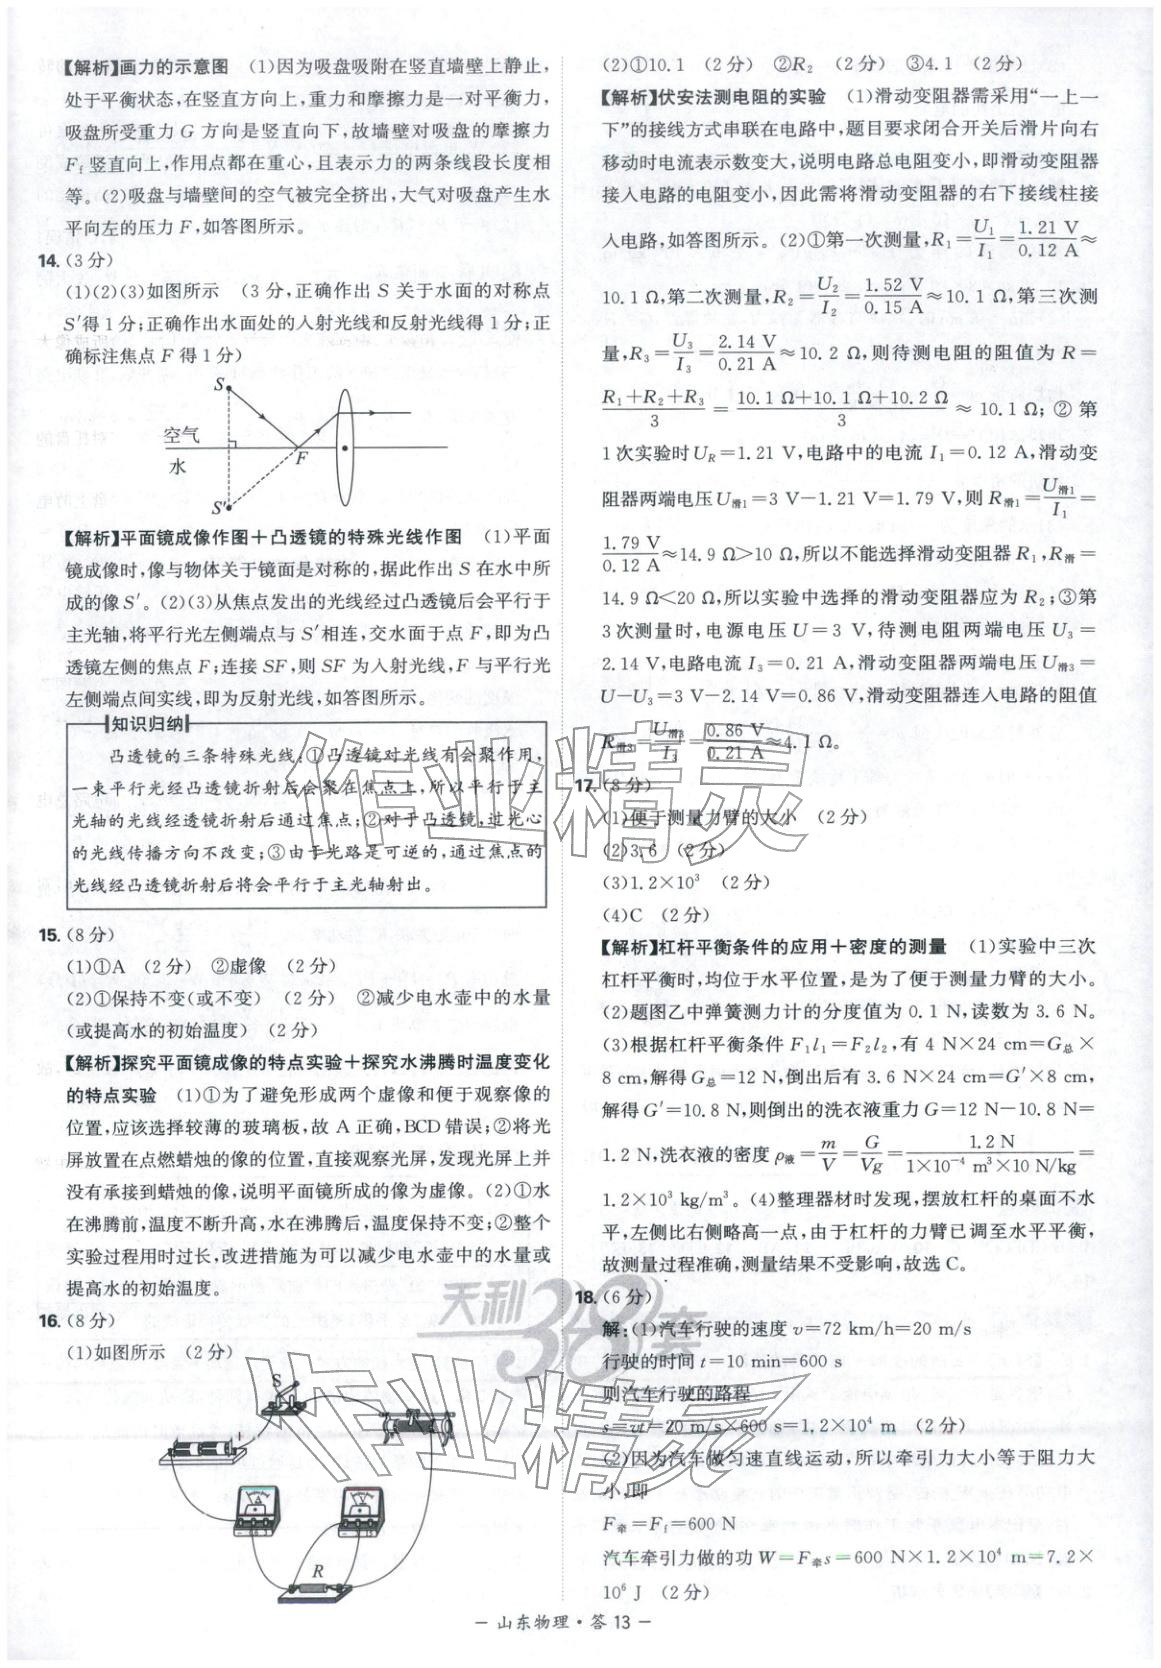 【解析】画力的示意图　(1)因为吸盘吸附在竖直墙壁上静止,
处于平衡状态,在竖直方向上,重力和摩擦力是一对平衡力,
吸盘所受重力 G 方向是竖直向下,故墙壁对吸盘的摩擦力
Ff 竖直向上,作用点都在重心,且表示力的两条线段长度相
等。(2)吸盘与墙壁间的空气被完全挤出,大气对吸盘产生水
平向左的压力 F,如答图所示。
14.(3分)
(1)(2)(3)如图所示　(3分,正确作出 S 关于水面的对称点
S′得1分;正确作出水面处的入射光线和反射光线得1分;正
确标注焦点 F 得1分)
S
空气
水
F
S′
【解析】平面镜成像作图＋凸透镜的特殊光线作图　(1)平面
镜成像时,像与物体关于镜面是对称的,据此作出 S 在水中所
成的像 S′。(2)(3)从焦点发出的光线经过凸透镜后会平行于
主光轴,将平行光左侧端点与 S′相连,交水面于点 F,即为凸
透镜左侧的焦点 F;连接 SF,则 SF 为入射光线,F 与平行光
左侧端点间实线,即为反射光线,如答图所示。
知识归纳
凸透镜的三条特殊光线:①凸透镜对光线有会聚作用,
一束平行光经凸透镜折射后会聚在焦点上,所以平行于主
光轴的光线经透镜折射后通过焦点;②对于凸透镜,过光心
的光线传播方向不改变;③由于光路是可逆的,通过焦点的
光线经凸透镜折射后将会平行于主光轴射出。
15.(8分)
(1)①A　(2分)　②虚像　(2分)
(2)①保持不变(或不变)　(2分)　②减少电水壶中的水量
(或提高水的初始温度)　(2分)
【解析】探究平面镜成像的特点实验＋探究水沸腾时温度变化
的特点实验　(1)①为了避免形成两个虚像和便于观察像的
位置,应该选择较薄的玻璃板,故 A 正确,BCD 错误;②将光
屏放置在点燃蜡烛的像的位置,直接观察光屏,发现光屏上并
没有承接到蜡烛的像,说明平面镜所成的像为虚像。(2)①水
在沸腾前,温度不断升高,水在沸腾后,温度保持不变;②整个
实验过程用时过长,改进措施为可以减少电水壶中的水量或
提高水的初始温度。
16.(8分)
(1)如图所示　(2分)
S
A
V
R
(2)①10.1　(2分)　②R₂　(2分)　③4.1　(2分)
【解析】伏安法测电阻的实验　(1)滑动变阻器需采用“一上一
下”的接线方式串联在电路中,题目要求闭合开关后滑片向右
移动时电流表示数变大,说明电路总电阻变小,即滑动变阻器
接入电路的电阻变小,因此需将滑动变阻器的右下接线柱接
入电路,如答图所示。(2)①第一次测量,R₁=U₁/I₁=1.21 V/0.12 A≈
10.1 Ω,第二次测量,R₂=U₂/I₂=1.52 V/0.15 A≈10.1 Ω,第三次测
量,R₃=U₃/I₃=2.14 V/0.21 A≈10.2 Ω,则待测电阻的阻值为 R=
(R₁+R₂+R₃)/3=(10.1 Ω+10.1 Ω+10.2 Ω)/3≈10.1 Ω;②第
1次实验时 U_R=1.21 V,电路中的电流 I₁=0.12 A,滑动变
阻器两端电压 U滑1=3 V−1.21 V=1.79 V,则 R滑1=U滑1/I₁=
1.79 V/0.12 A≈14.9 Ω>10 Ω,所以不能选择滑动变阻器 R₁,R滑=
14.9 Ω<20 Ω,所以实验中选择的滑动变阻器应为 R₂;③第
3次测量时,电源电压 U=3 V,待测电阻两端电压 U₃=
2.14 V,电路电流 I₃=0.21 A,滑动变阻器两端电压 U滑3=
U−U₃=3 V−2.14 V=0.86 V,滑动变阻器连入电路的阻值
R滑3=U滑3/I₃=0.86 V/0.21 A≈4.1 Ω。
17.(8分)
(1)便于测量力臂的大小　(2分)
(2)3.6　(2分)
(3)1.2×10³　(2分)
(4)C　(2分)
【解析】杠杆平衡条件的应用＋密度的测量　(1)实验中三次
杠杆平衡时,均位于水平位置,是为了便于测量力臂的大小。
(2)题图乙中弹簧测力计的分度值为 0.1 N,读数为 3.6 N。
(3)根据杠杆平衡条件 F₁l₁=F₂l₂,有 4 N×24 cm=G总×
8 cm,解得 G总=12 N,倒出后有 3.6 N×24 cm=G′×8 cm,
解得 G′=10.8 N,则倒出的洗衣液重力 G=12 N−10.8 N=
1.2 N,洗衣液的密度 ρ液=m/V=G/Vg=1.2 N/(1×10⁻⁴ m³×10 N/kg)=
1.2×10³ kg/m³。(4)整理器材时发现,摆放杠杆的桌面不水
平,左侧比右侧略高一点,由于杠杆的力臂已调至水平平衡,
故测量过程准确,测量结果不受影响,故选 C。
18.(6分)
解:(1)汽车行驶的速度 v=72 km/h=20 m/s
行驶的时间 t=10 min=600 s
则汽车行驶的路程
s=vt=20 m/s×600 s=1.2×10⁴ m　(2分)
(2)因为汽车做匀速直线运动,所以牵引力大小等于阻力大
小,即
F牵=Ff=600 N
汽车牵引力做的功 W=F牵s=600 N×1.2×10⁴ m=7.2×
10⁶ J　(2分)
作业精灵
天利38套
作业精灵
— 山东物理·答 13 —